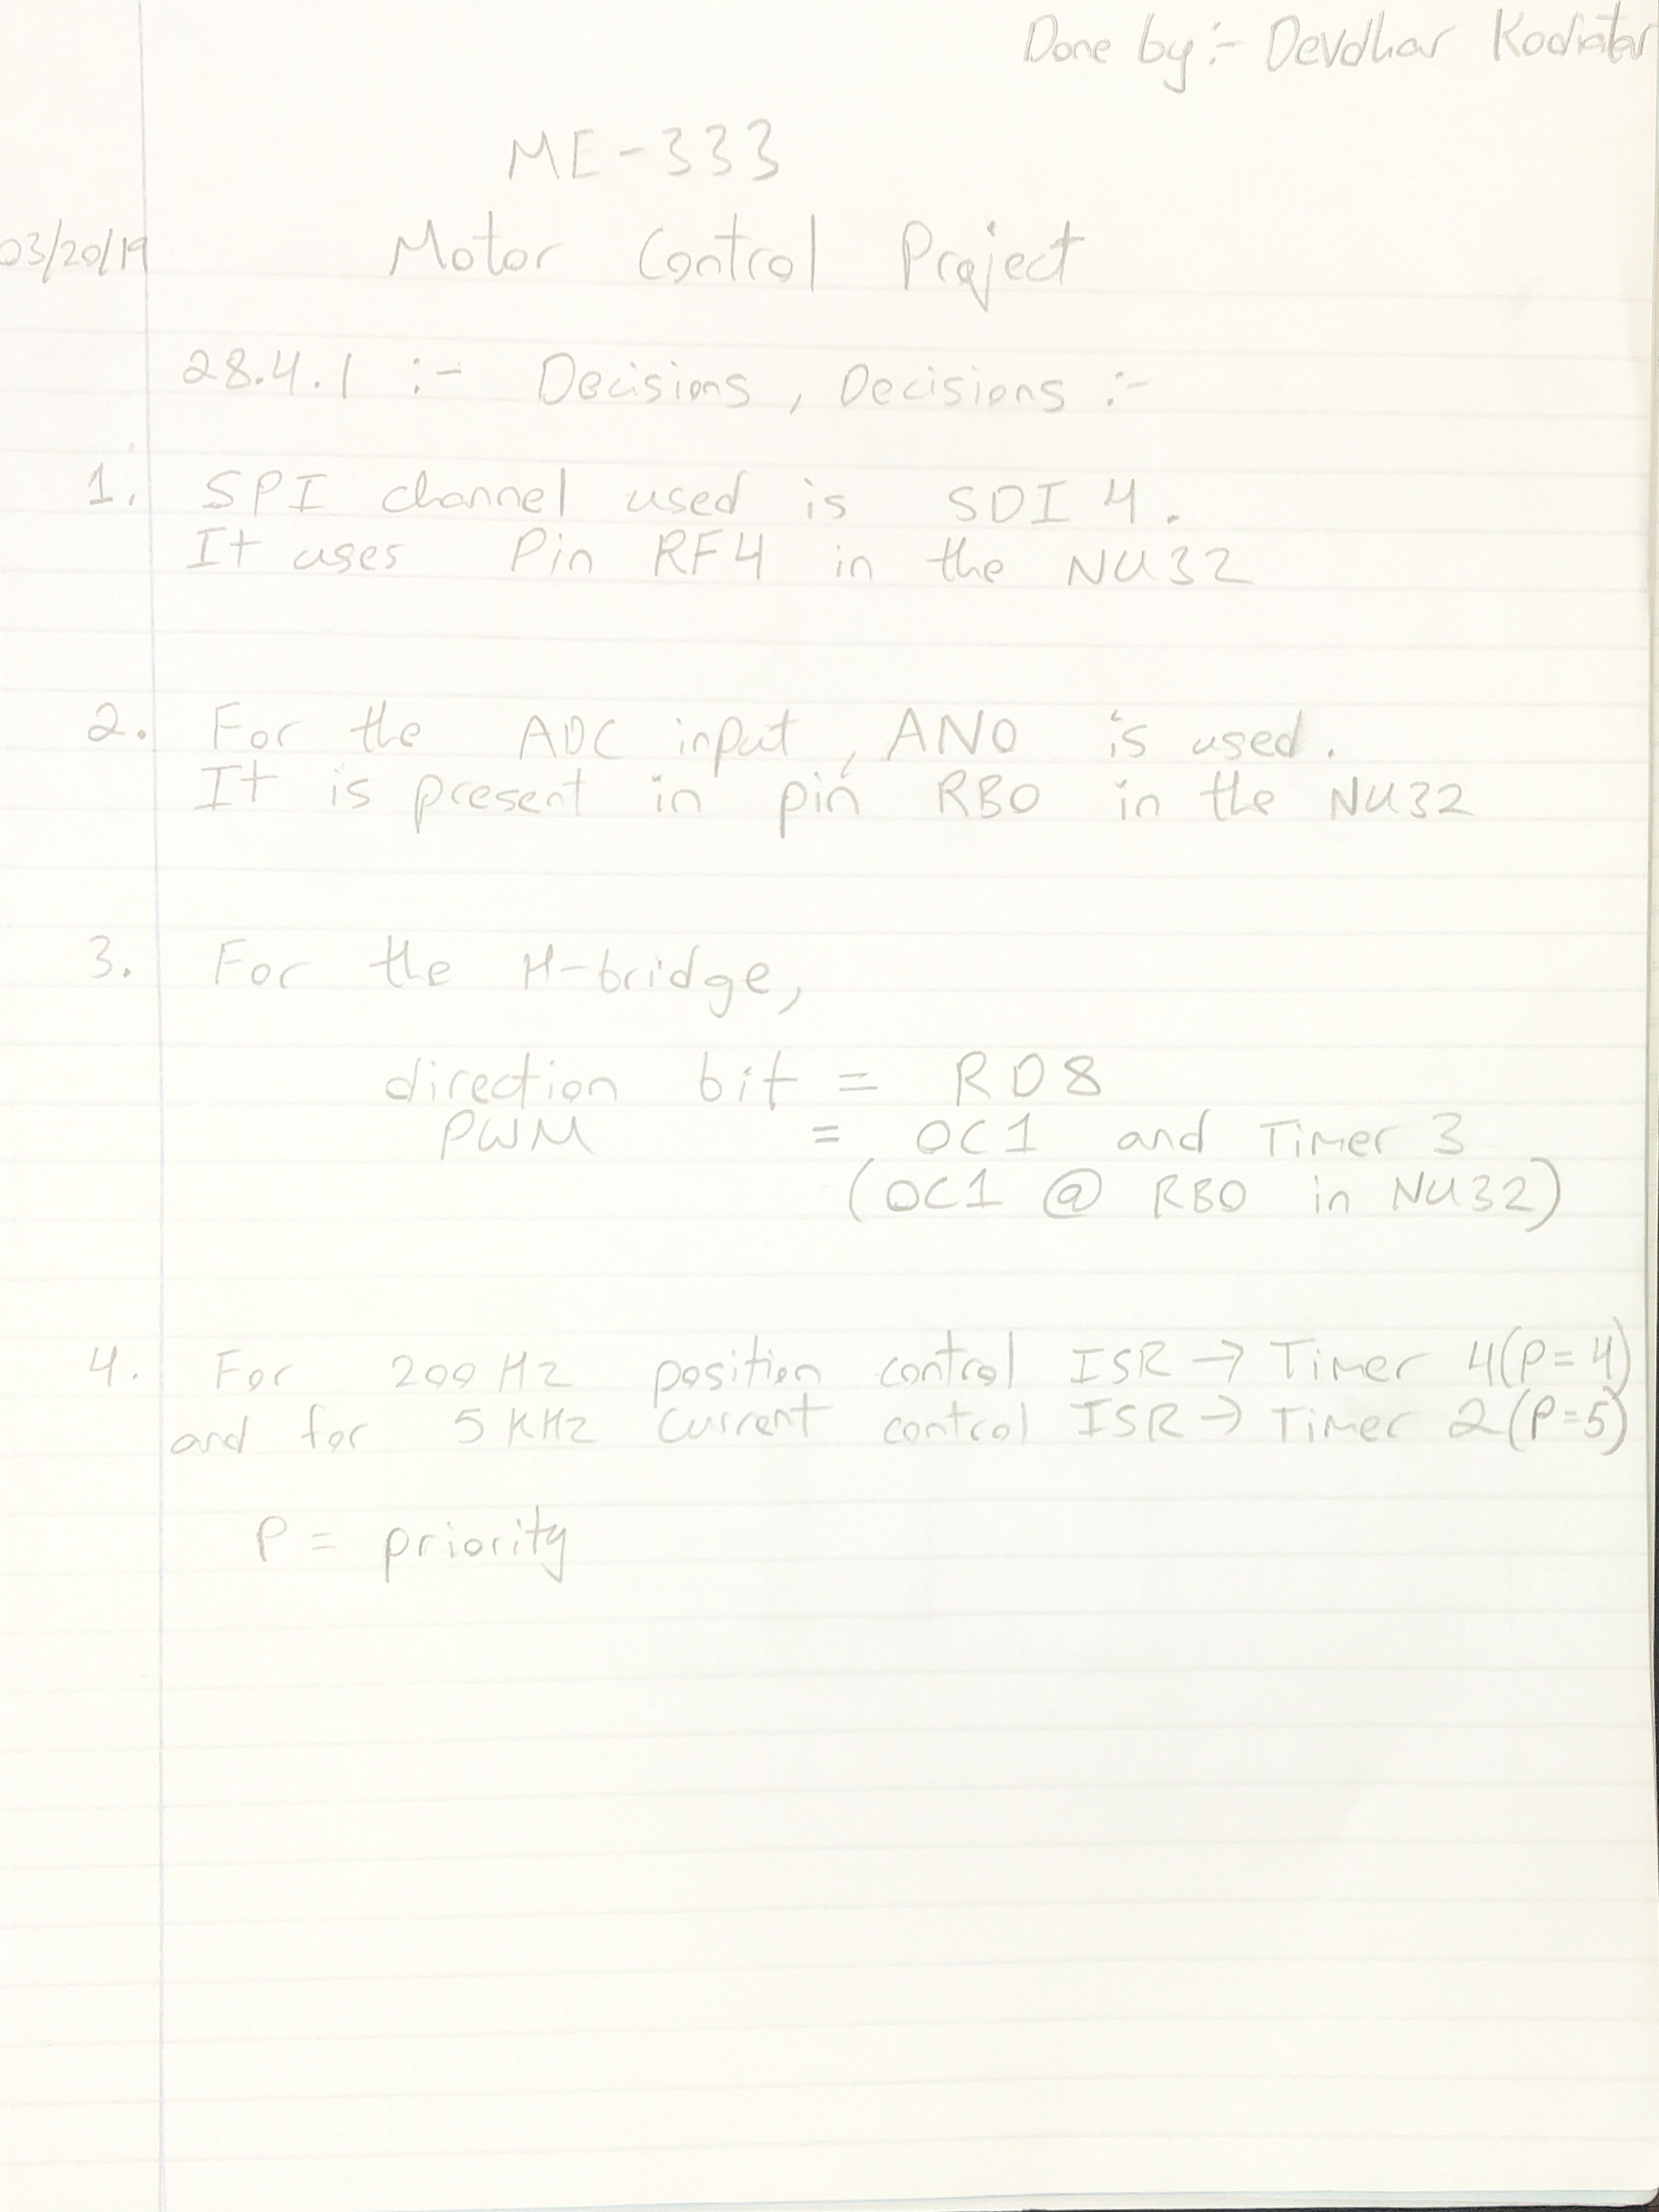 Done by:- Devdhar
ME-333
03/20/19 Motor Control Project
28.4.1 :- Decisions, Decisions :-
1. SPI channel used is SDI 4.
It uses Pin RF4 in the NU32
2. For the ADC input, AN0 is used.
It is present in pin RB0 in the NU32
3. For the H-bridge,
direction bit = RD8
PWM = OC1 and Timer 3
(OC1 @ RB0 in NU32)
4. For 200 Hz position control ISR → Timer 4(P=4)
and for 5 KHz current control ISR → Timer 2(P=5)
P = priority